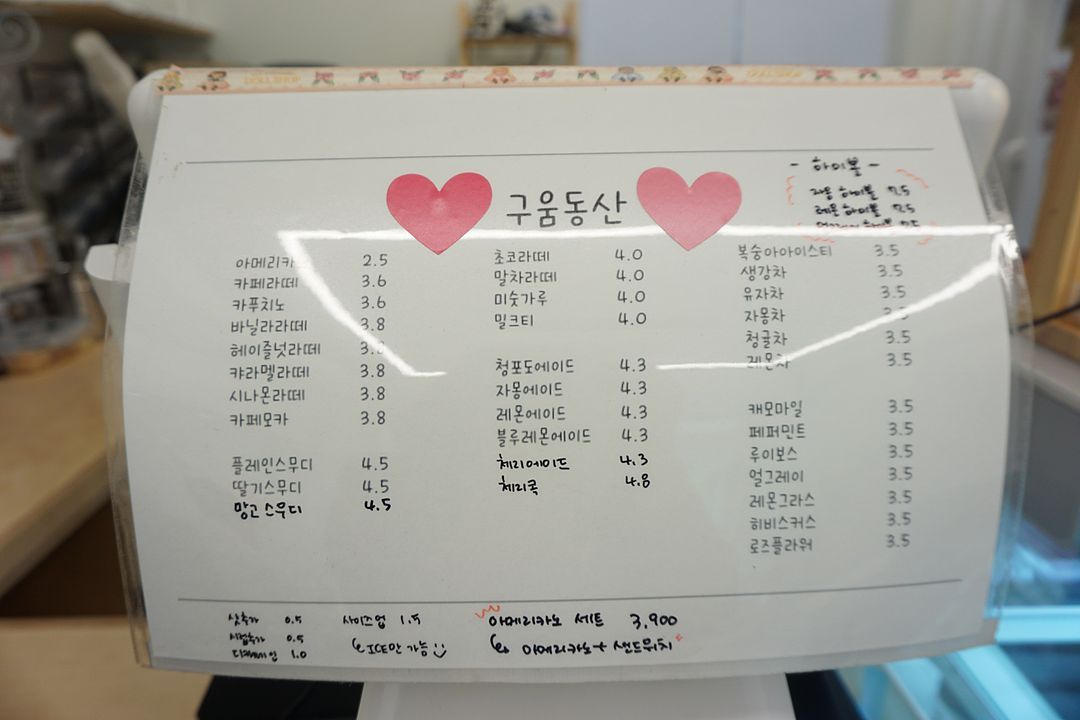 구움동산
- 하이볼 -
자몽 하이볼 7.5
레몬 하이볼 7.5
아메리카 2.5
카페라떼 3.6
카푸치노 3.6
바닐라라떼 3.8
헤이즐넛라떼 3.8
캬라멜라떼 3.8
시나몬라떼 3.8
카페모카 3.8
플레인스무디 4.5
딸기스무디 4.5
망고스무디 4.5
초코라떼 4.0
말차라떼 4.0
미숫가루 4.0
밀크티 4.0
청포도에이드 4.3
자몽에이드 4.3
레몬에이드 4.3
블루레몬에이드 4.3
체리에이드 4.3
체리콕 4.8
복숭아아이스티 3.5
생강차 3.5
유자차 3.5
자몽차 3.5
청귤차 3.5
레몬차 3.5
캐모마일 3.5
페퍼민트 3.5
루이보스 3.5
얼그레이 3.5
레몬그라스 3.5
히비스커스 3.5
로즈플라워 3.5
샷추가 0.5
시럽추가 0.5
디카페인 1.0
사이즈업 1.5
ICE만 가능
아메리카노 세트 3,900
아메리카노 + 샌드위치